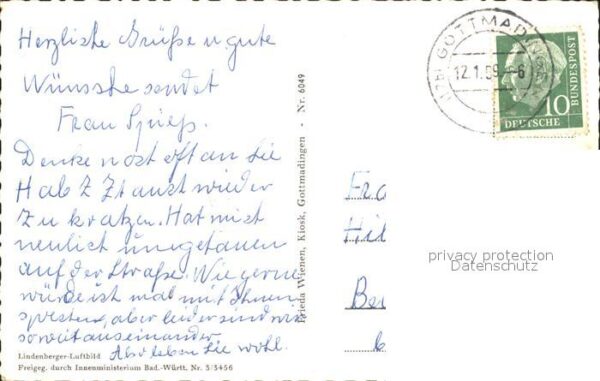 Herzliche Grüße u gute
Wünsche sendet
Frau Spieß.
Denke noch oft an Sie
Hab z Zt auch wieder
zu kratzen. Hat mich
neulich umgetauen
auf der Straße. Wie gerne
würde ich mal mit Ihnen
aber leider sind wir
so weit auseinander
Also leben Sie wohl.
Lindenberger-Luftbild
Freigeg. durch Innenministerium Bad.-Württ. Nr. 5/5456
Frieda Wienen, Kiosk, Gottmadingen - Nr. 6049
GOTTMADINGEN
12.1.59.-6
10
DEUTSCHE
BUNDESPOST
Fra
Hil
Be
privacy protection
Datenschutz